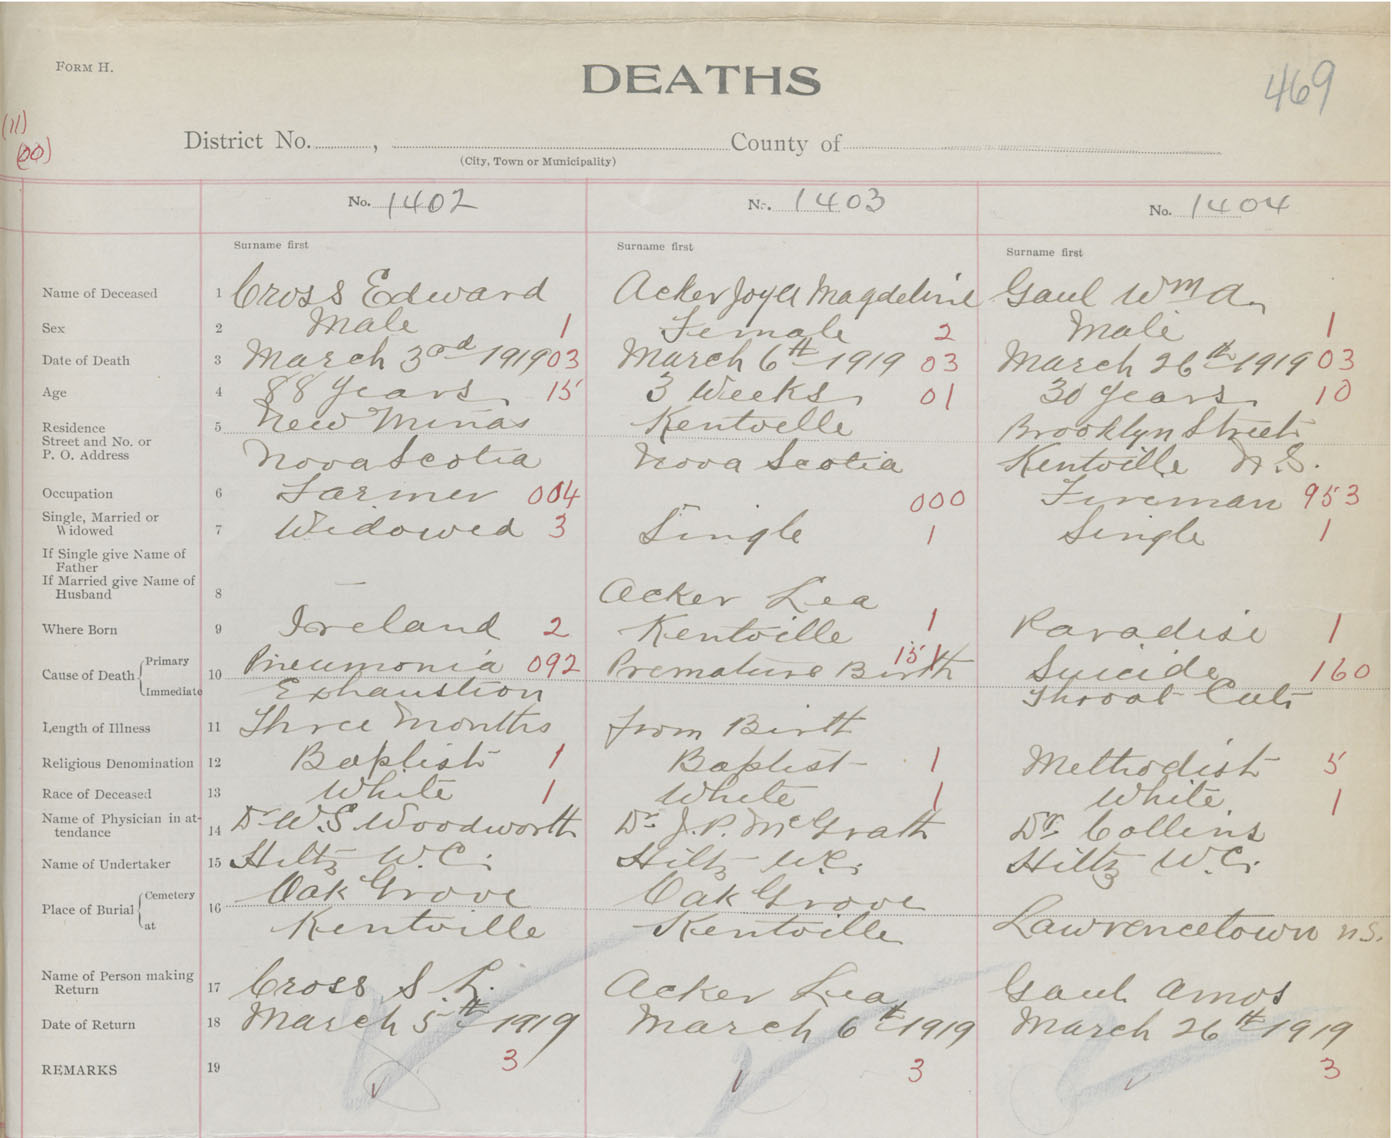 FORM H.
DEATHS
469
(11)
(00)
District No. , County of
(City, Town or Municipality)
No. 1402 No. 1403 No. 1404
Surname first Surname first Surname first
Name of Deceased 1 Cross Edward Acker Joyce Magdeline Gaul Wm A.
Sex 2 Male 1 Female 2 Male 1
Date of Death 3 March 3rd 1919 03 March 6th 1919 03 March 26th 1919 03
Age 4 88 Years 15 3 Weeks 01 30 Years 10
Residence 5 New Minas Kentville Brooklyn Street
Street and No. or
P. O. Address Nova Scotia Nova Scotia Kentville N.S.
Occupation 6 Farmer 004 000 Fireman 953
Single, Married or
Widowed 7 Widowed 3 Single 1 Single 1
If Single give Name of
Father
If Married give Name of
Husband 8 — Acker Lea
Where Born 9 Ireland 2 Kentville 1 Paradise 1
Cause of Death { Primary 10 Pneumonia 092 Premature Birth 151 Suicide 160
Immediate Exhaustion Throat Cut
Length of Illness 11 Three Months from Birth
Religious Denomination 12 Baptist 1 Baptist 1 Methodist 5
Race of Deceased 13 White 1 White 1 White 1
Name of Physician in at-
tendance 14 Dr W.S Woodworth Dr. J.P. McGrath Dr. Collins
Name of Undertaker 15 Hiltz W.C. Hiltz W.C. Hiltz W.C.
Place of Burial { Cemetery 16 Oak Grove Oak Grove
at Kentville Kentville Lawrencetown N.S.
Name of Person making
Return 17 Cross S. L. Acker Lea Gaul Amos
Date of Return 18 March 5th 1919 March 6th 1919 March 26th 1919
REMARKS 19 3 3 3